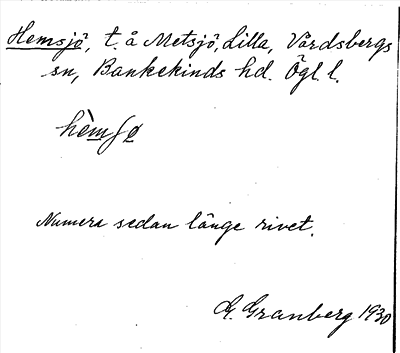 Hemsjö, t. å Metsjö, Lilla, Vårdsbergs
sn, Bankekinds hd. Ögl. l.
hèmʃø
Numera sedan länge rivet.
G. Granberg 1930